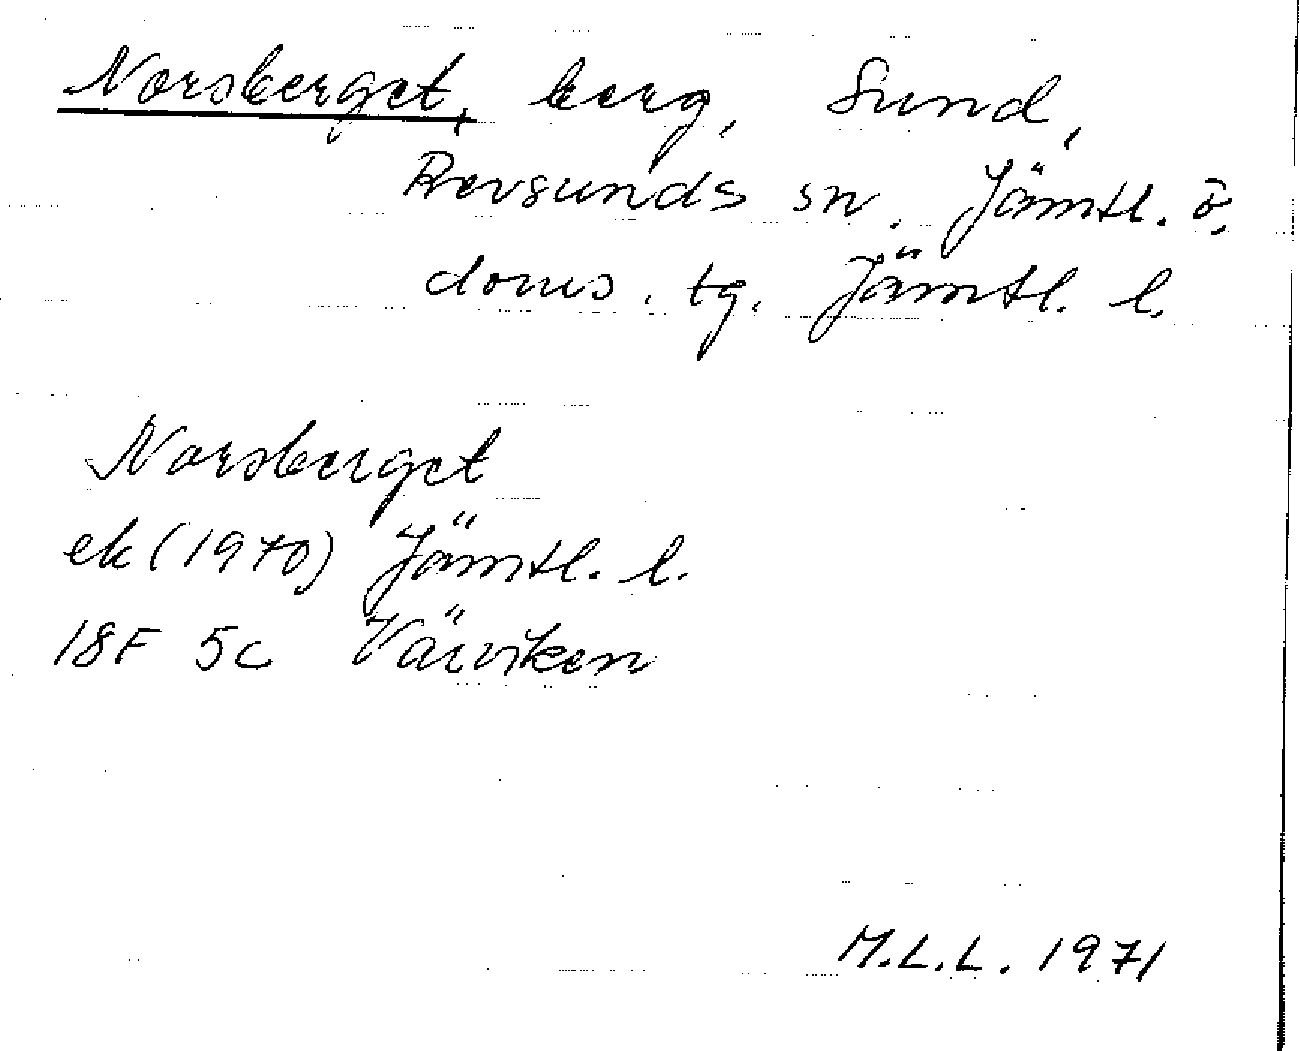 Norsberget, berg, Sund,
Revsunds sn. Jämtl. ö.
doms. tg. Jämtl. l.
Norsberget
ek (1970) Jämtl. l.
18F 5c Värviken
M.L.L. 1971